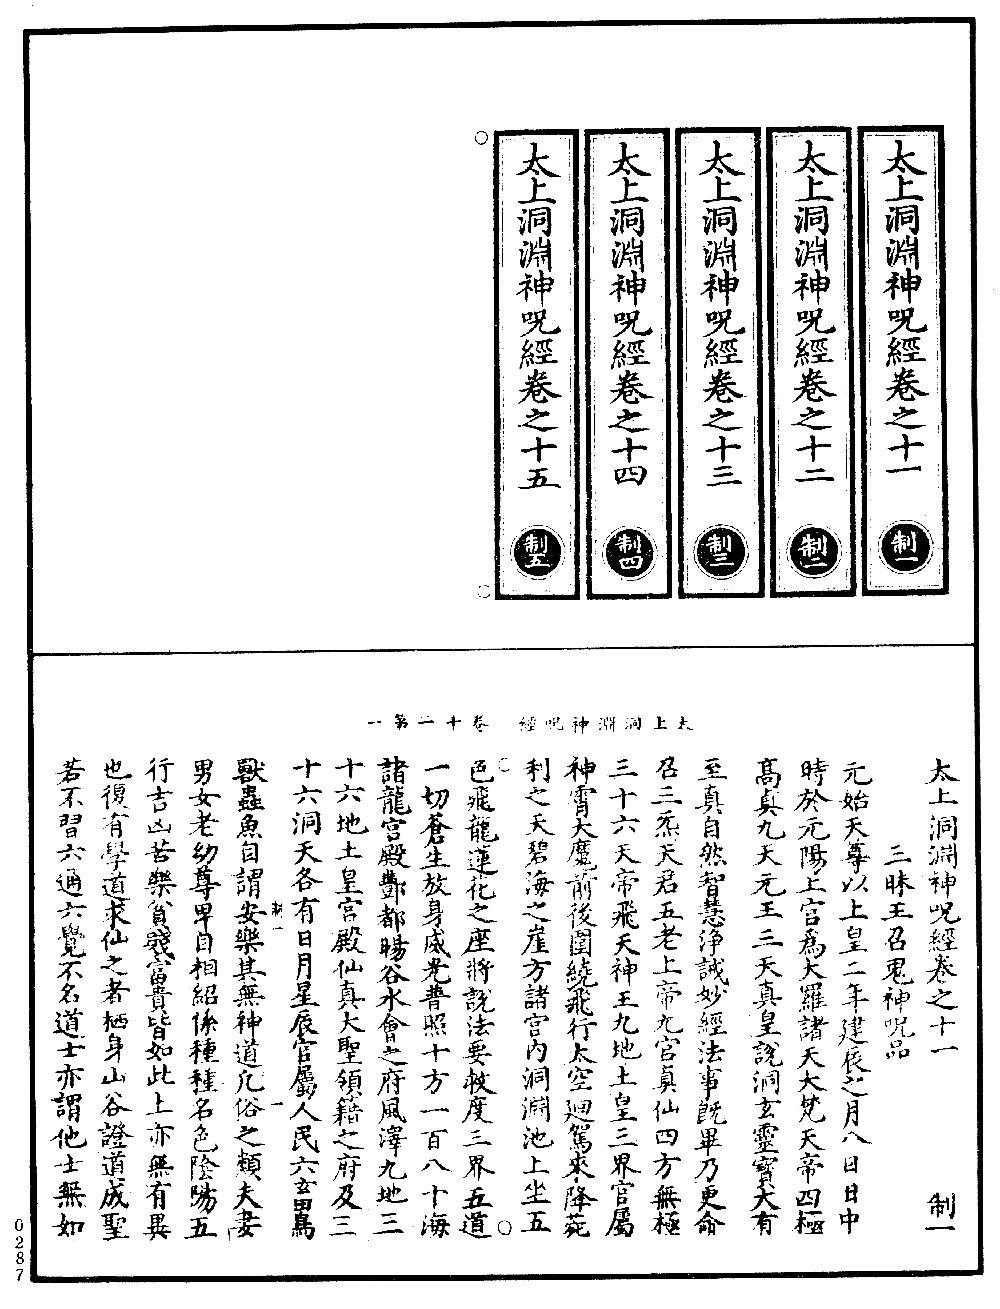 太上洞淵神呪經卷之十一
制一
太上洞淵神呪經卷之十二
制二
太上洞淵神呪經卷之十三
制三
太上洞淵神呪經卷之十四
制四
太上洞淵神呪經卷之十五
制五
太上洞淵神呪經 卷十一第一
太上洞淵神呪經卷之十一 制一
三昧王召鬼神呪品
元始天尊以上皇二年建辰之月八日日中
時於元陽上宫爲大羅諸天大梵天帝四極
高真九天元王三天真皇說洞玄靈寳大有
至真自然智慧淨誡妙經法事旣畢乃更命
召三炁天君五老上帝九宫真仙四方無極
三十六天帝飛天神王九地土皇三界官屬
神霄大魔前後圍繞飛行太空迴駕來降菀
利之天碧海之崖方諸宫内洞淵池上坐五
色飛龍蓮花之座將說法要救度三界五道
一切蒼生放身威光普照十方一百八十海
諸龍宫殿酆都暘谷水會之府風澤九地三
十六地土皇宫殿仙真大聖領籍之府及三
十六洞天各有日月星辰官屬人民六畜鳥
獸蟲魚自謂安樂其無神道凡俗之類夫妻
制一
一
男女老幼尊卑自相紹係種種名色陰陽五
行吉凶苦樂貧賤富貴皆如此上亦無有異
也復有學道求仙之者栖身山谷證道成聖
若不習六通六覺不名道士亦謂他士無如
0287